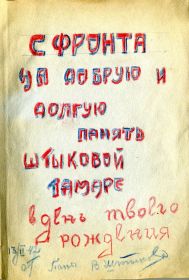 С ФРОНТА
НА ДОБРУЮ И
ДОЛГУЮ
ПАМЯТЬ
ШТЫКОВОЙ
ТАМАРЕ
в день твоего
рождения
от Папы